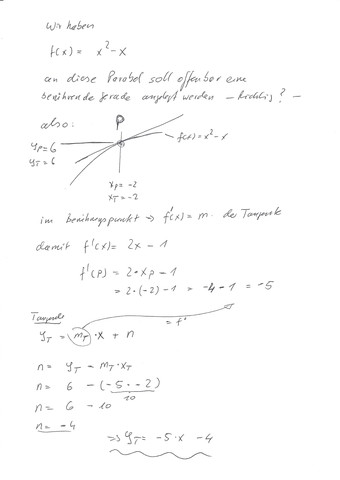 Wir haben
f(x) = x² - x
an diese Parabel soll offenbar eine
berührende Gerade angelegt werden – Richtig? –
also:
P
f(x) = x² - x
yP = 6
yT = 6
xP = -2
xT = -2
im Berührungspunkt → f'(x) = m der Tangente
damit f'(x) = 2x - 1
f'(P) = 2·xP - 1
= 2·(-2) - 1 = -4 - 1 = -5
Tangente
= f'
yT = mT · x + n
n = yT - mT · xT
n = 6 - (-5 · -2)
10
n = 6 - 10
n = -4
⇒ yT = -5·x - 4